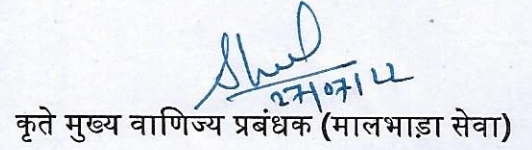 27/07/22
कृते मुख्य वाणिज्य प्रबंधक (मालभाड़ा सेवा)